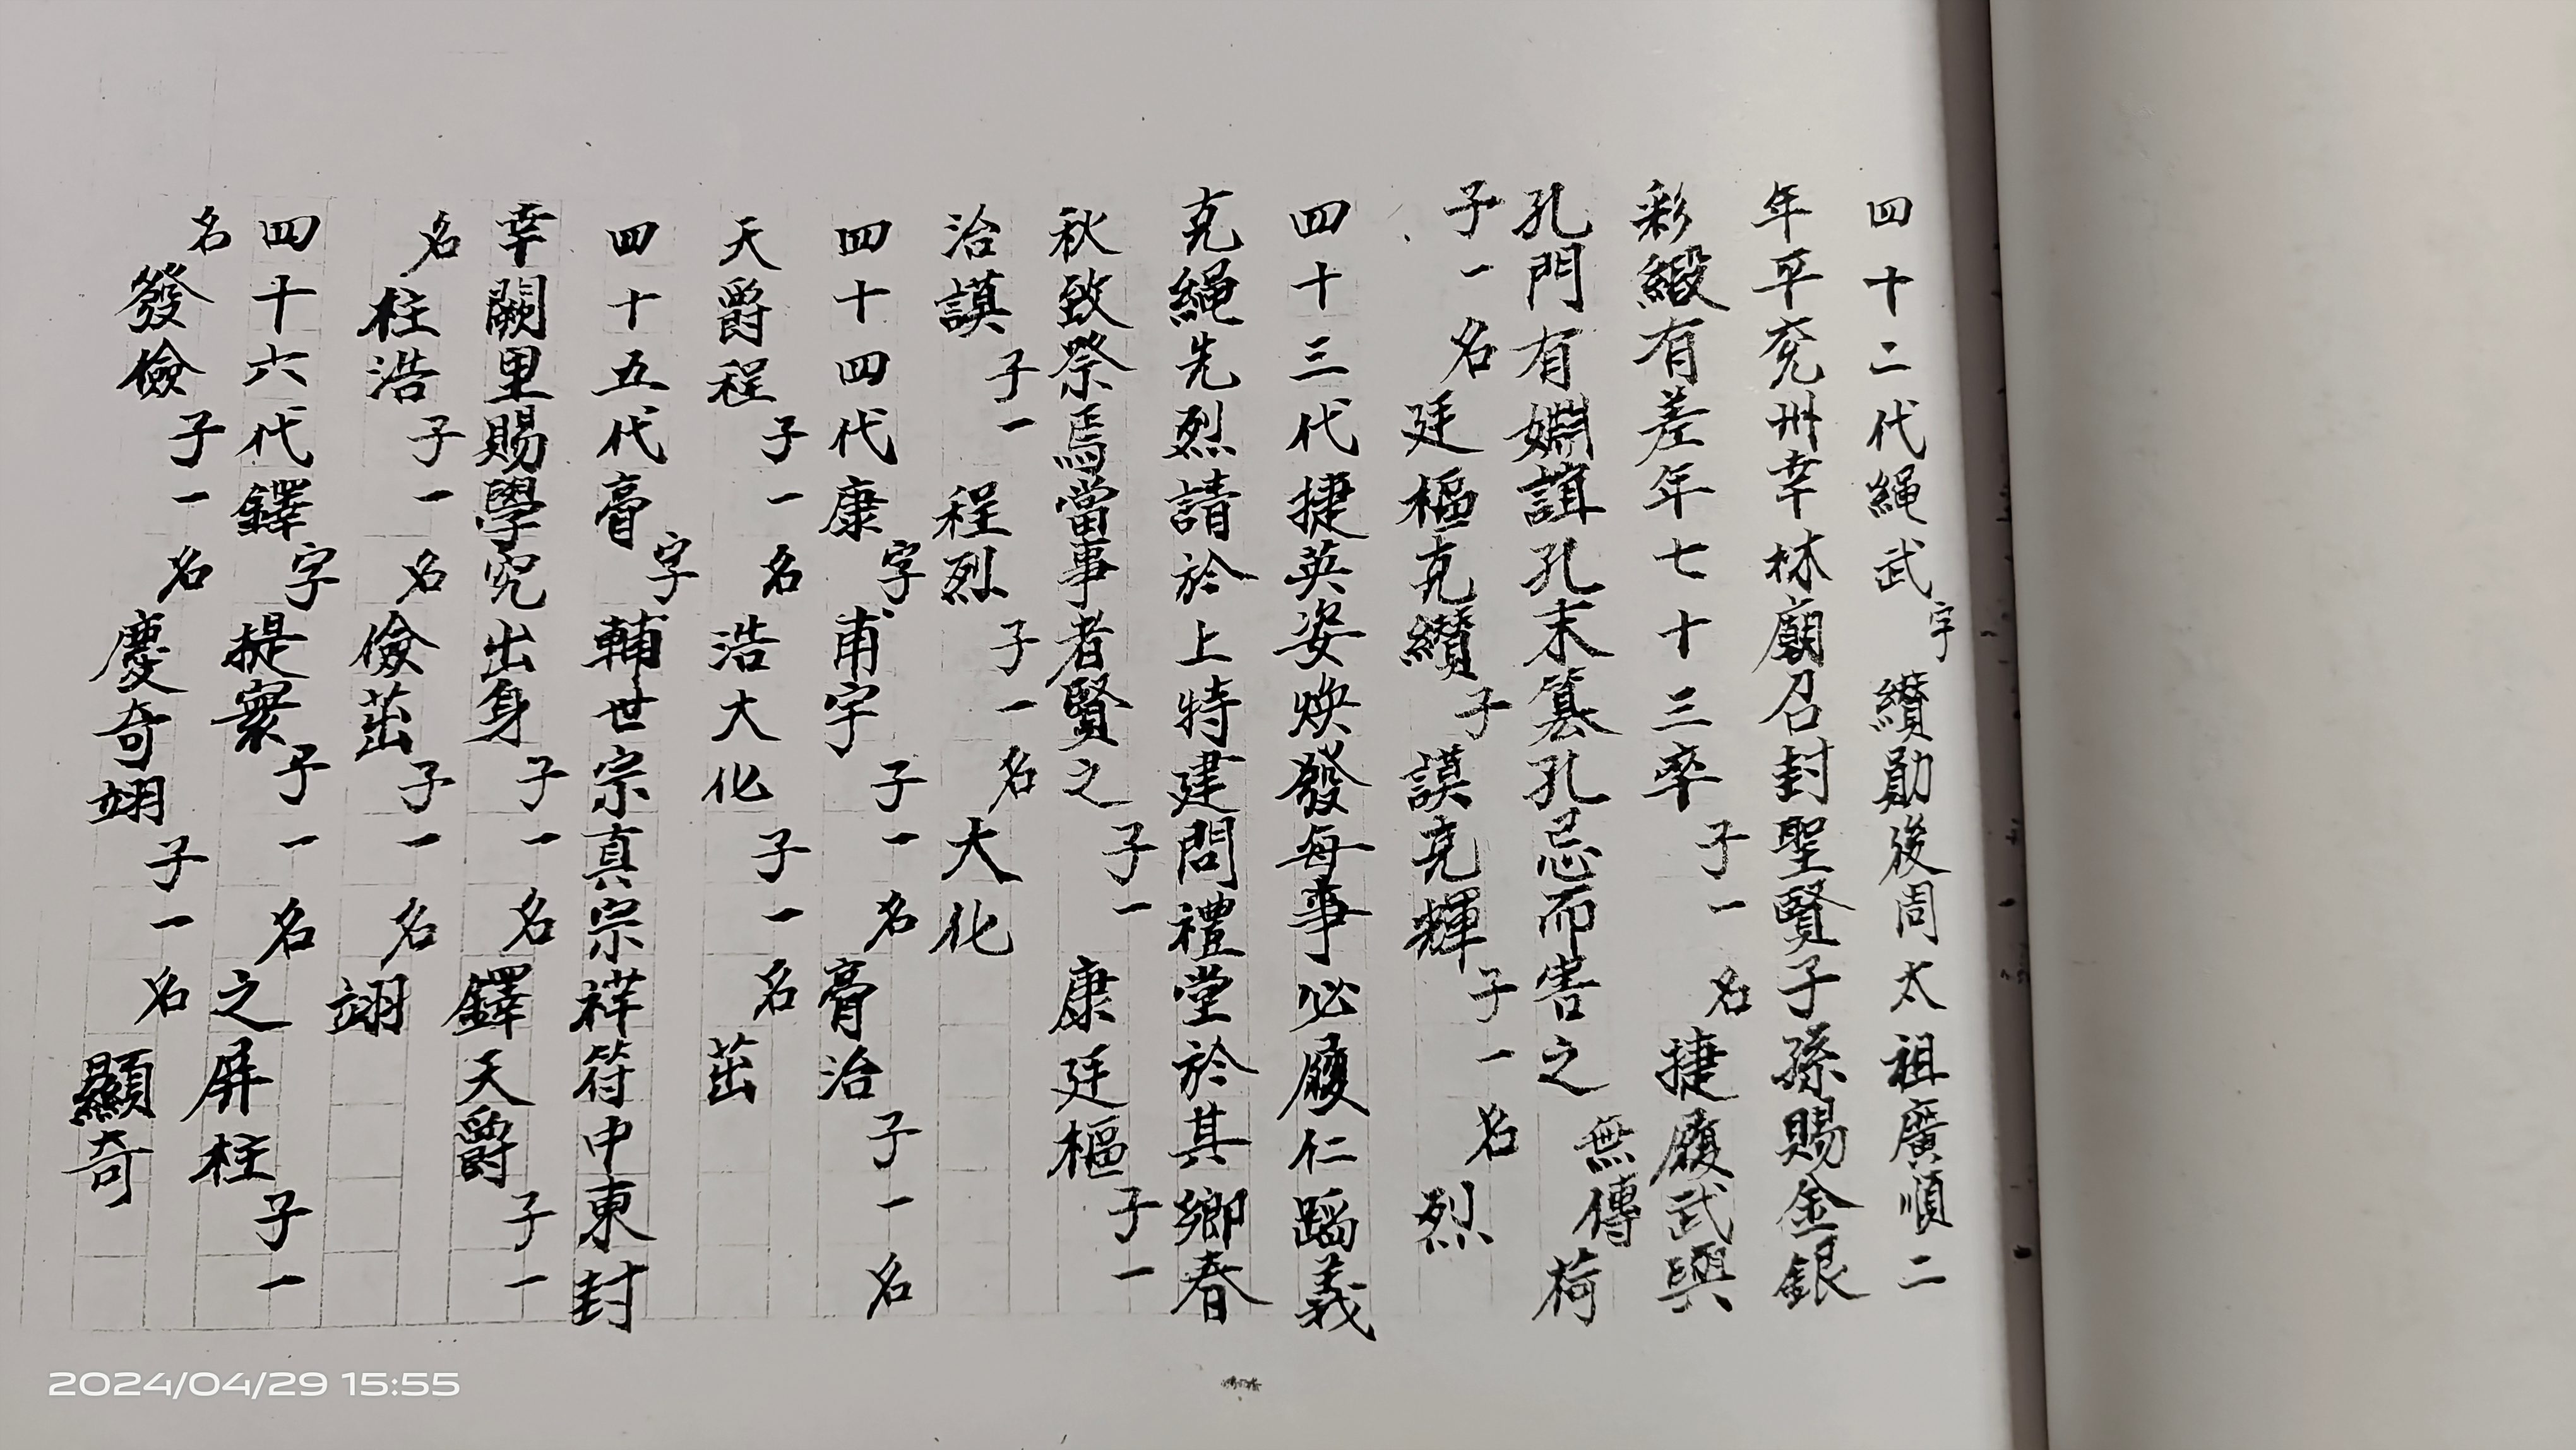 四十二代繩武字纘勛後周太祖廣順二
年平兗州幸林廟召封聖賢子孫賜金銀
彩緞有差年七十三卒子一名捷履武興
孔門有嫺誼孔末篡孔忌而害之無傳荷
子一名廷樞克纘子謨克輝子一名烈
四十三代捷英姿煥發每事必履仁蹈義
克繩先烈請於上特建問禮堂於其鄉春
秋致祭焉當事者賢之子一康廷樞子一
治謨子一程烈子一名大化
四十四代康字甫宇子一名膏治子一名
天爵程子一名浩大化子一名茁
四十五代膏字輔世宗真宗祥符中東封
幸闕里賜學究出身子一名鐸天爵子一
名柱浩子一名儉茁子一名翊
四十六代鐸字提寰子一名之屏柱子一
名發儉子一名慶奇翊子一名顯奇
2024/04/29 15:55